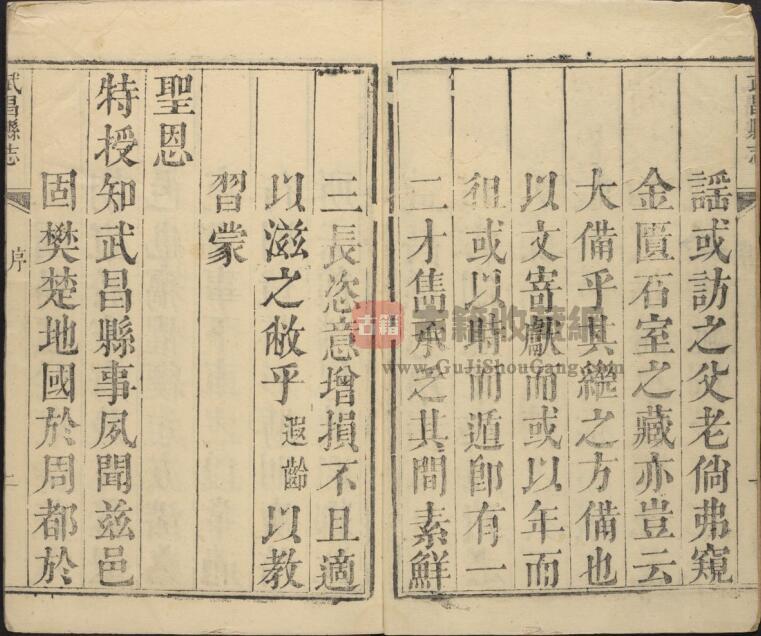 武昌縣志
謡或訪之父老倘弗窺
金匱石室之藏亦豈云
大備乎其繼之方備也
以文寄獻而或以年而
徂或以時而遁卽有一
二才雋承之其間素鮮
三長恣意增損不且適
以滋之敝乎遐齡以教
習蒙
聖恩
特授知武昌縣事夙聞茲邑
固樊楚地國於周都於
武昌縣志 序
古籍
古籍收藏網
www.GuJiShouCang.com